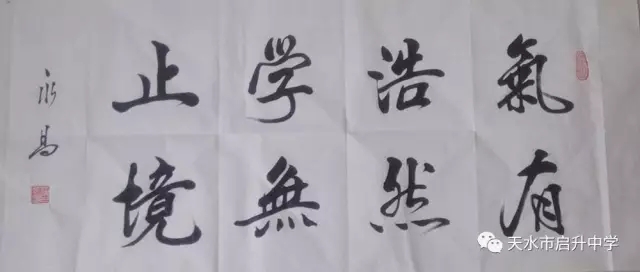 氣有
浩然
学無
止境
永
天水市启升中学